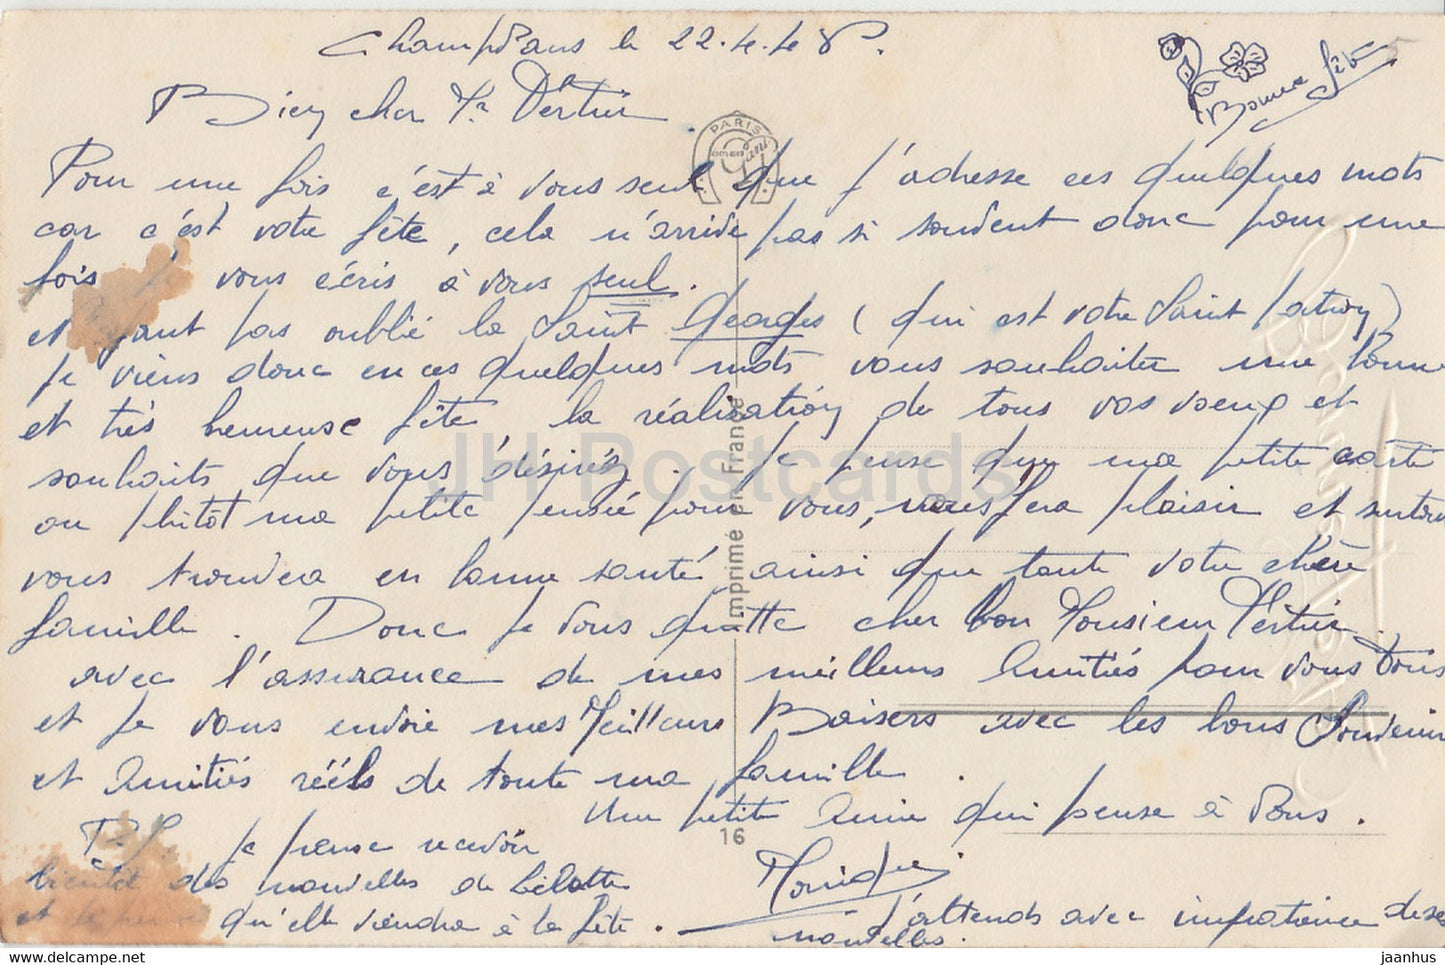 Champdans le 22.4.48.
Bonne fête
Bien cher Mr Vertrier
PARIS
Pour une fois c'est à vous seul que j'adresse ces quelques mots
car c'est votre fête, cela n'arrive pas si souvent donc pour une
fois je vous écris à vous seul.
et ayant pas oublié la Saint Georges (qui est votre Saint Patron)
je viens donc en ces quelques mots vous souhaiter une bonne
et très heureuse fête la réalisation de tous vos voeux et
souhaits que vous désirés. Je pense que ma petite carte
ou plutôt ma petite pensée pour vous, vous fera plaisir et surtout
vous trouvera en bonne santé ainsi que toute votre chère
famille. Donc je vous quitte cher bon Monsieur Vertrier.
avec l'assurance de mes meilleurs Amitiés pour vous Tous
et je vous envoie mes Meilleurs Baisers avec les bons Souvenir
et Amitiés réels de toute ma famille.
Une petite Amie qui pense à Vous.
P.S. je pense recevoir
bientôt des nouvelles de Lilotte
et je pense qu'elle viendra à la fête.
Monique.
J'attends avec impatience de ses
nouvelles.
Imprimé en France
16
Bonne Fête
JH Postcards
www.delcampe.net
jaanhus